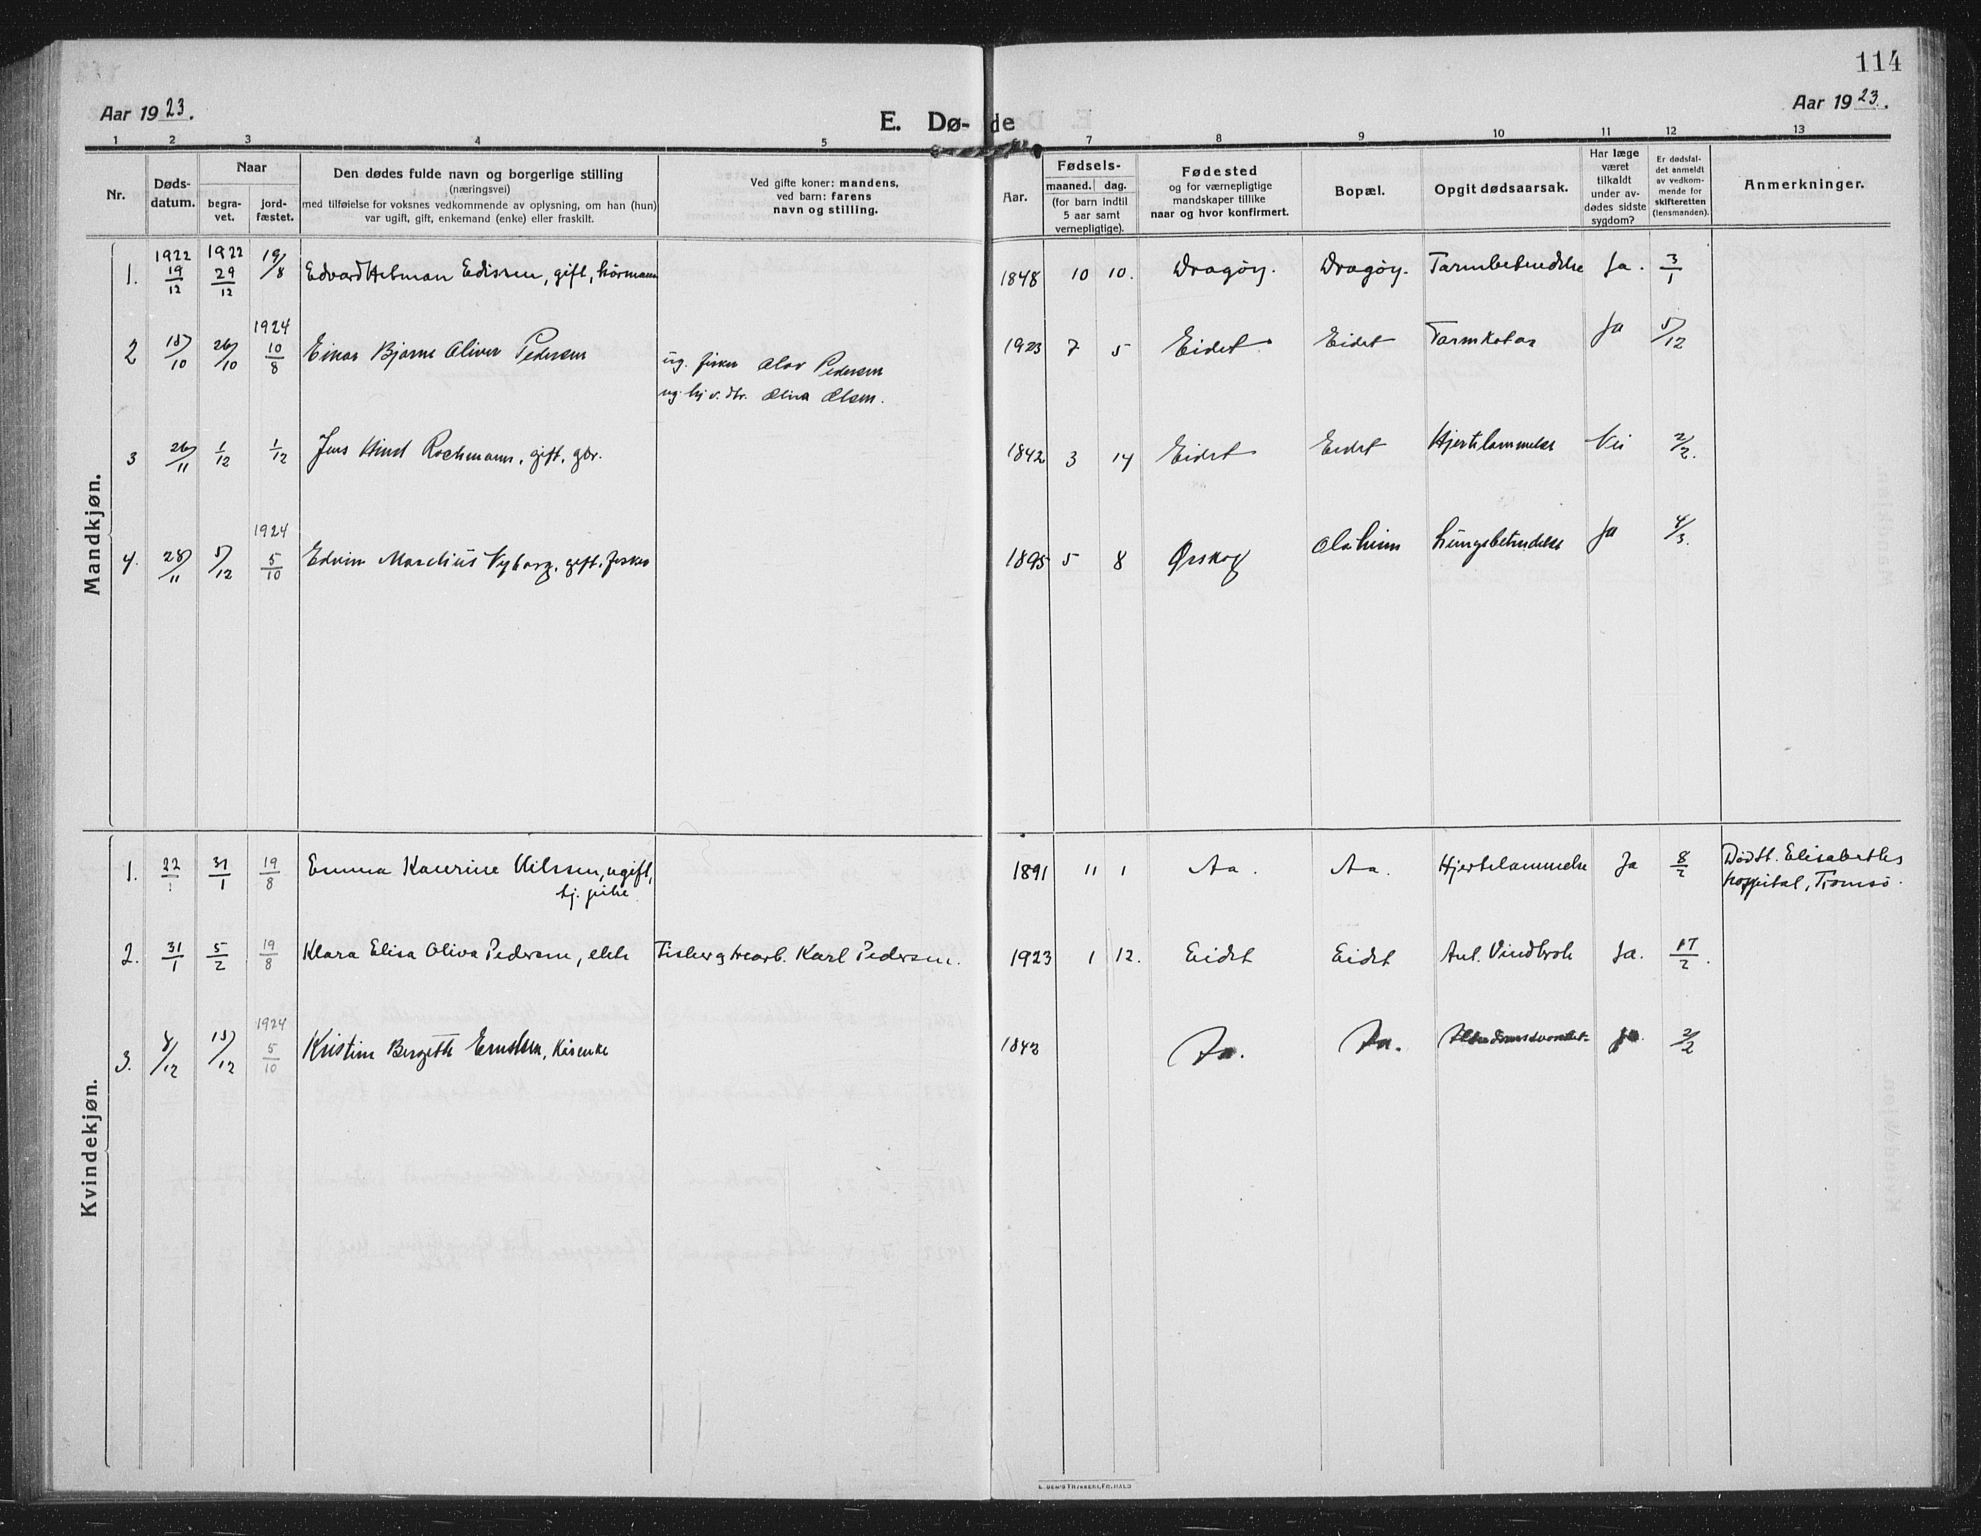 114
Aar 1923.
E. Dø- de
Aar 1923.
1 2 3 4 5 7 8 9 10 11 12 13
Nr.
Døds-
datum.
Naar
begra-
vet.
jord-
fæstet.
Den dødes fulde navn og borgerlige stilling
(næringsvei)
med tilføielse for voksnes vedkommende av oplysning, om han (hun)
var ugift, gift, enkemand (enke) eller fraskilt.
Ved gifte koner: mandens,
ved barn: farens
navn og stilling.
Aar.
Fødsels-
maaned. dag.
(for barn indtil
5 aar samt
vernepligtige).
Fødested
og for værnepligtige
mandskaper tillike
naar og hvor konfirmert.
Bopæl.
Opgit dødsaarsak.
Har læge
været
tilkaldt
under av-
dødes sidste
sygdom?
Er dødsfal-
det anmeldt
av vedkom-
mende for
skifteretten
(lensmanden).
Anmerkninger.
Mandkjøn.
1. 1922 19/12 1922 29/12 19/8 Edvard Hetman Edissen, gift, kårmann 1848 10 10. Dragöy. Dragöy. Tarmbetendelse Ja. 3/1
2 18/10 26/10 1924 10/8 Einar Bjarne Oliver Pedersen ug. fisker Olav Pedersen 1923 7 5 Eidet Eidet Tarmkatar Ja 5/12
ug. Olina Olsen.
3 26/11 1/12 1/12 Jens Hind Rochmann, gift, gbr. 1842 3 14 Eidet Eidet Hjertelammelse Nei 2/2.
4. 28/11 5/12 1924 5/10 Edvin Marelius Nyborg, gift, fisker 1895 5 8 Ørskog Olaheim Lungebetendelse Ja 4/3.
Kvindekjøn.
1. 22/1 31/1 19/8 Emma Kaurine Nilssen, ugift, 1891 11 1 Aa. Aa. Hjertelammelse Ja 8/2 Död St. Elisabeths
tj. pike. hospital, Tromsö.
2. 31/1 5/2 19/8 Klara Elisa Oliva Pedersen, ekte Fisker og trearb. Karl Pedersen. 1923 1 12. Eidet Eidet Ant. Vindbrok Ja. 17/2.
3. 8/12 15/12 1924 5/10 Kristine Bergette Ernstsen, Kårenke 1842 Aa. Aa. Alderdomssvakhet Ja. 2/2
E. SEM'S TRYKKERI, FR.HALD